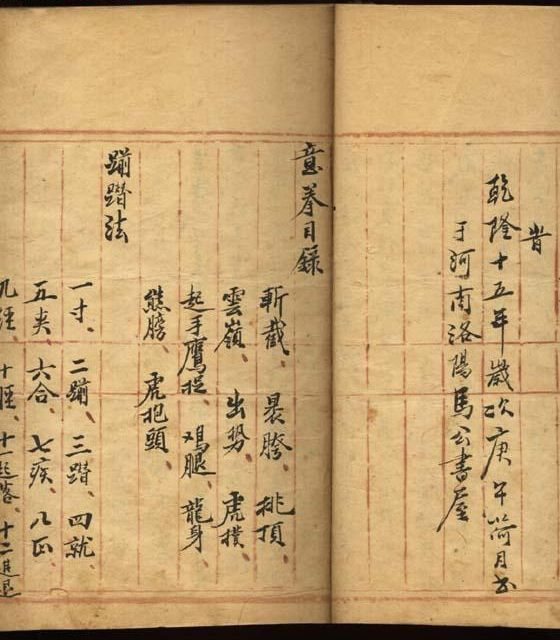 旹
乾隆十五年歲次庚午荷月書
于河南洛陽馬公書屋
意拳目錄
斬截、裹胯、挑頂
雲嶺、出勢、虎撲
起手鷹捉、鸡腿、龍身、
熊膀、虎抱頭
蹦蹅法
一寸、二蹦、三蹅、四就、
五夹、六合、七疾、八正
九經、十脛、十一起落、十二進退